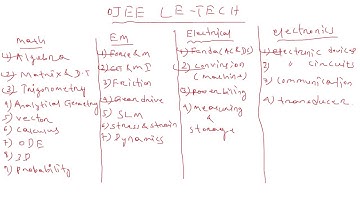 OJEE LE-TECH
main
1) Algebra
2) Matrix & D.T
3) Trigonometry
4) Analytical Geometry
5) vector
6) calculus
7) ODE
8) 3D
9) Probability
EM
1) Force & m
2) & M I
3) Friction
4) Gear drive
5) SLM
6) Stress & strain
7) Dynamics
Electrical
1) Fonda (AC & DC)
2) Convirsion
(machine)
3) power billing
4) measuring
&
storage
electronics
1) electronic devices
2) " circuits
3) communication
4) transducer